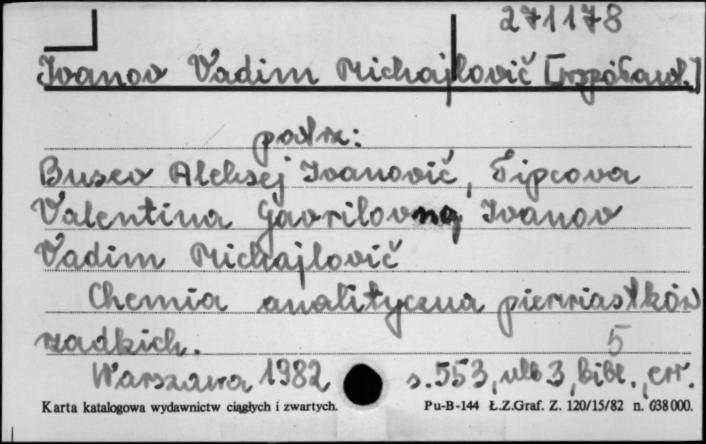 271178
Ivanov Vadim Michajlovič [współaut.]
patrz:
Busev Aleksej Ivanovič, Tipcova
Valentina Gavrilovna, Ivanov
Vadim Michajlovič
Chemia analityczna pierwiastków
rzadkich.
5
Warszawa 1982 s. 553, ulb 3, bibl., err.
Karta katalogowa wydawnictw ciągłych i zwartych. Pu-B-144 Ł.Z.Graf. Z. 120/15/82 n. 638000.